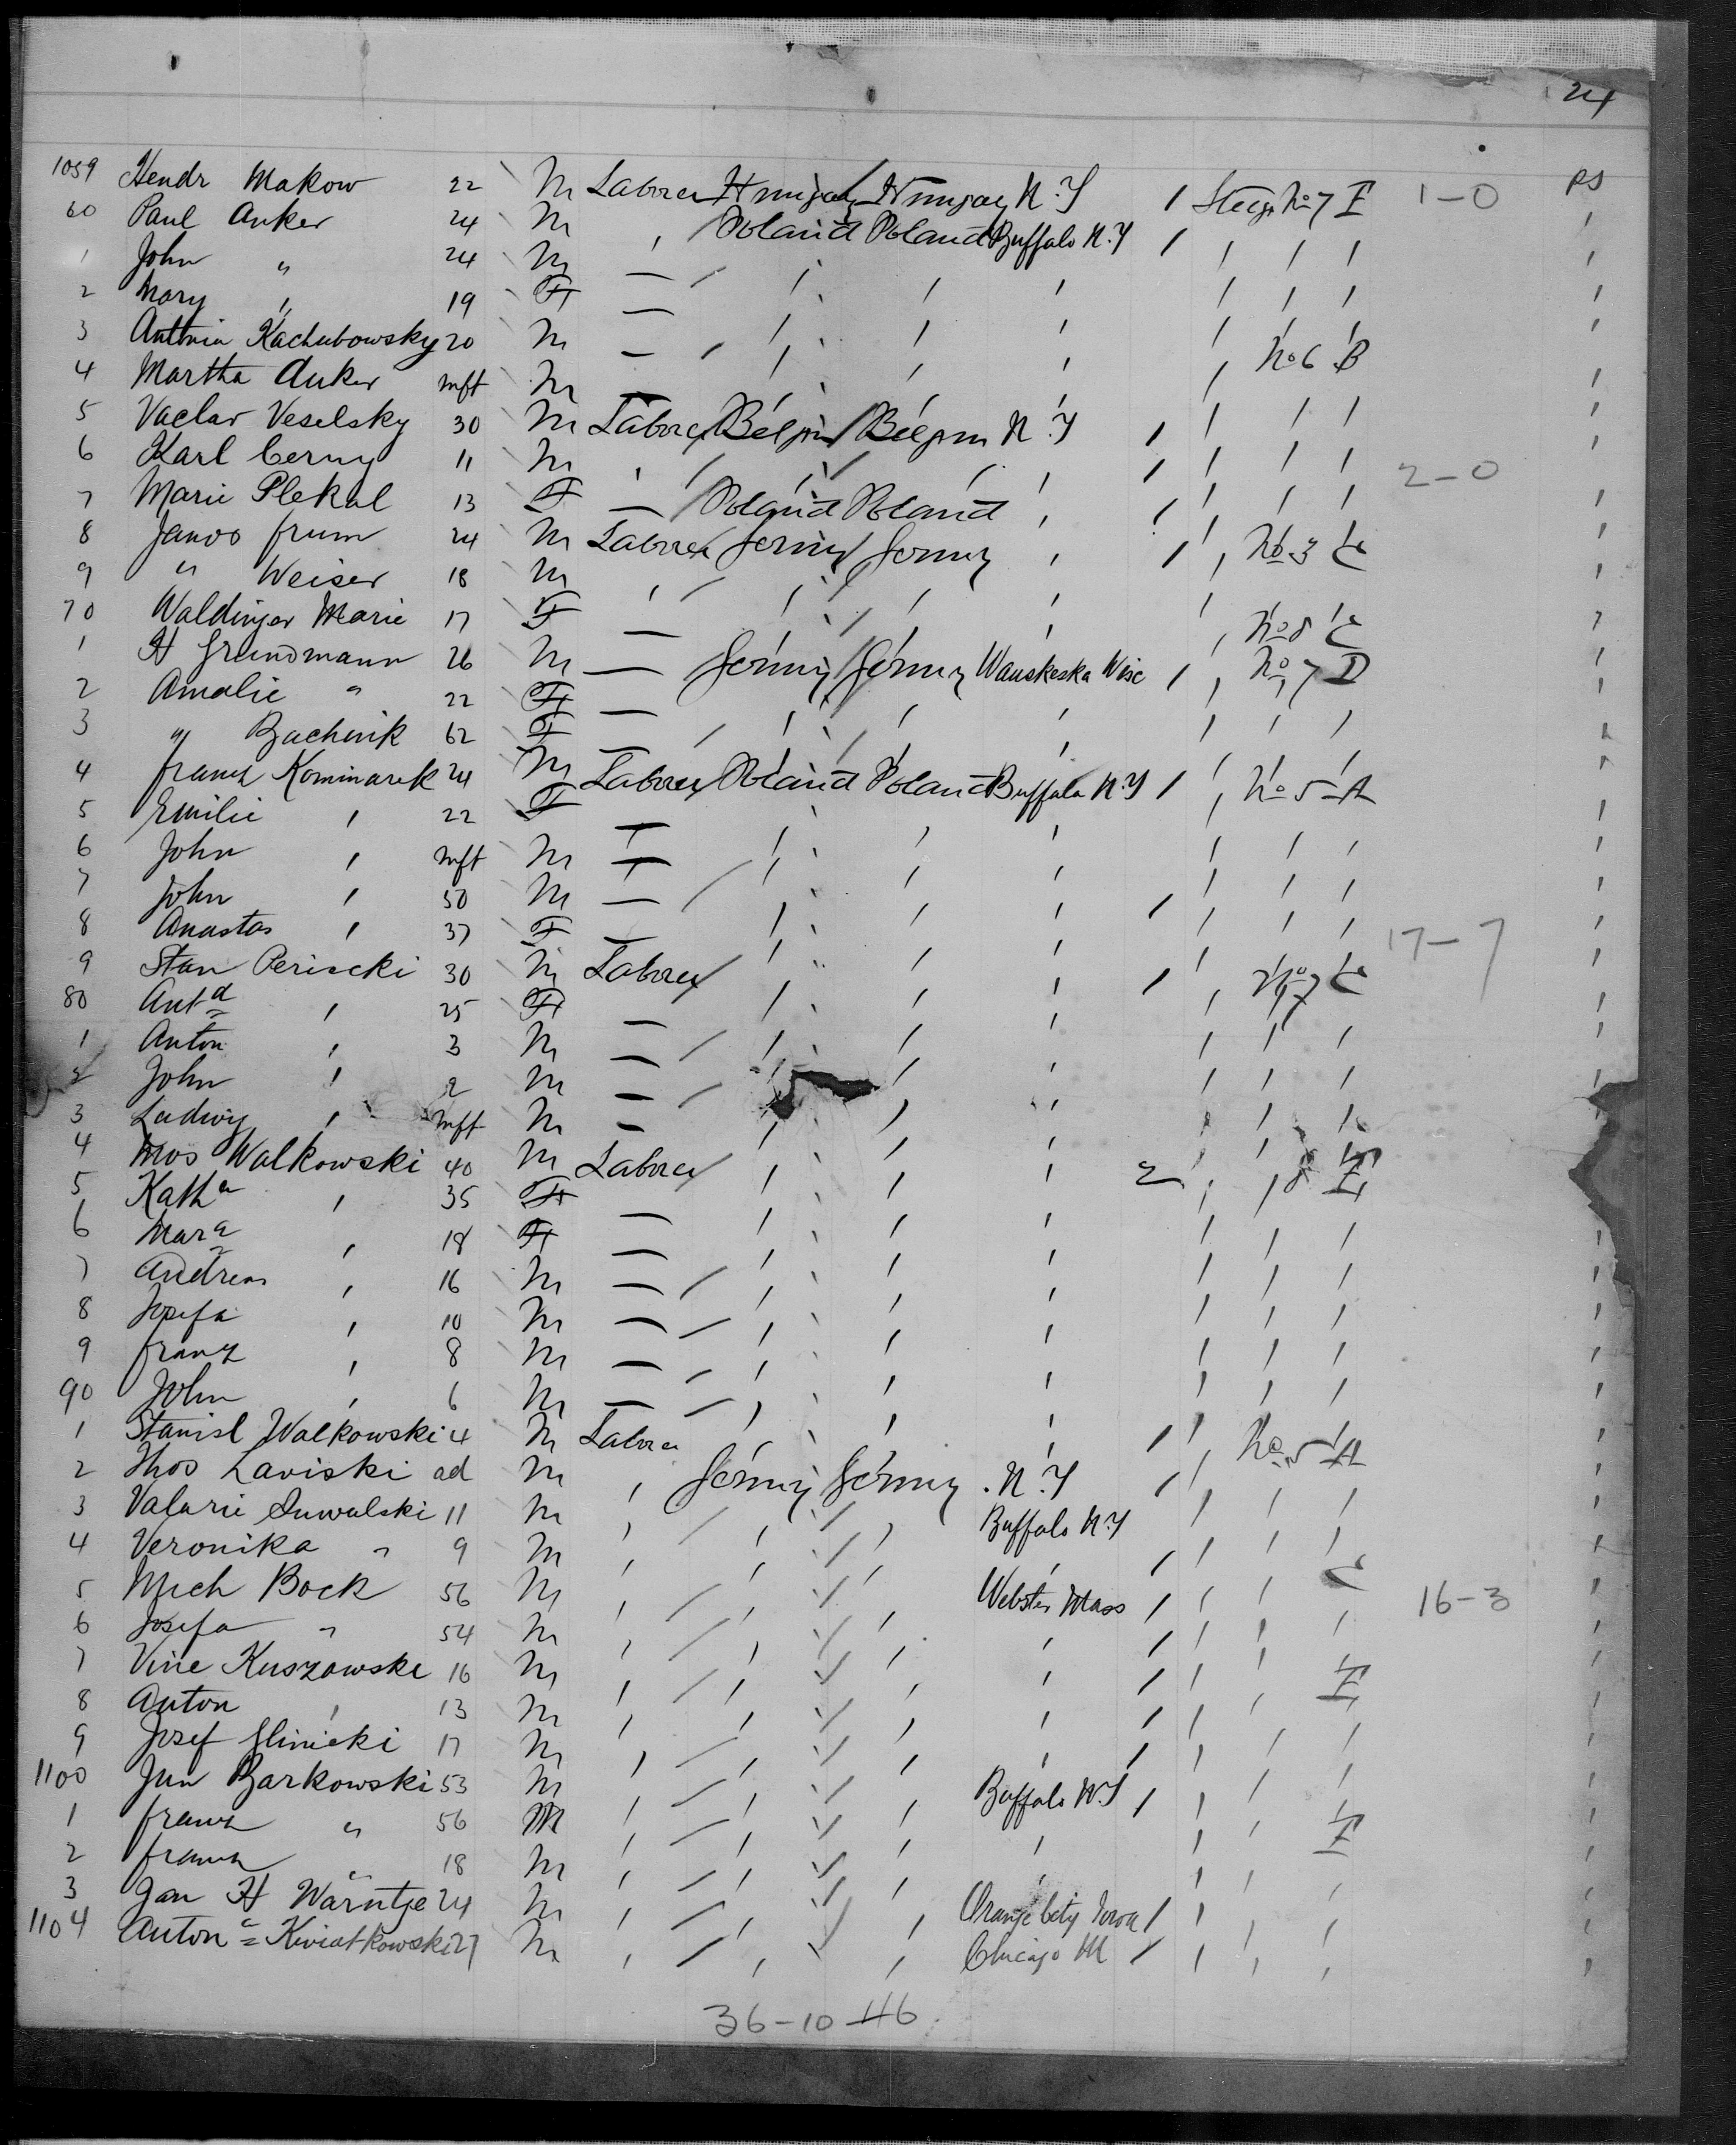 24
1059 Hendr Makow 22 M Laborer Hungary Hungary N.Y 1 Steerge No 7 E 1-0 PS
60 Paul Anker 24 M , Poland Poland Buffalo N.Y 1 / / /
1 John " 24 M — / / / / / /
2 Mary " 19 F — / / / / / /
3 Antonia Kachubowsky 20 M — / / / / No 6 B
4 Martha Anker inft M — / / / / / /
5 Vaclav Veselsky 30 M Laborer Belgin Belgium N.Y 1 / / /
6 Karl Cerny 11 M , / / / 1 / / / 2-0
7 Marie Plekal 13 F — Poland Poland , 1 / / /
8 Janos Grum 24 M Laborer Germy Germy , 1 , No 3 C
9 " Weiser 18 M , / / /
70 Waldinger Marie 17 F — / / / , No 8 C
1 H Grundmann 26 M — Germy Germy Wauskeska Wisc 1 , No 7 D
2 Amalie " 22 F — / / / / / /
3 " Bachinik 62 F — / / / / / /
4 Franz Kominarek 24 M Laborer Poland Poland Buffalo N.Y 1 , No 5 A
5 Emilie , 22 F — / / / / / /
6 John , inft M — / / / / / /
7 John , 50 M — / / / 1 / / /
8 Anastas , 37 F — / / / 17-7
9 Stan Periscki 30 M Laborer / / / 1 , No 7 C
80 Anta , 25 F — / / / / / /
1 Anton , 3 M — / / / / / /
2 John , 2 M — / / / / / /
3 Ludwig , inft M — / / / / / /
4 Walkowski 40 M Laborer / / / 2 , , 8 E
5 Katha , 35 F — / / / / / /
6 Mara , 18 F — / / / / / /
7 Andreas , 16 M — / / / / / /
8 Josefa , 10 M — / / / / / /
9 Franz , 8 M — / / / / / /
90 John , 6 M — / / / / / /
1 Stanisl Walkowski 4 M Laborer / / / 1 , No 5 A
2 Thos Laviski ad M , Germy Germy N.Y 1 / / /
3 Valarie Suwalski 11 M , / / Buffalo N.Y / / /
4 Veronika " 9 M , / / / 1 / / C
5 Mich Bock 56 M , / / Webster Mass 1 / / 16-3
6 Josefa " 54 M , / / / 1 / / /
7 Vine Kuszowske 16 M , / / / 1 / / E
8 Anton , 13 M , / / / 1 / / /
9 Josef Glinicki 17 M , / / / 1 / / /
1100 Jun Barkowski 53 M , / / Buffalo N.Y 1 / / /
1 Franz " 56 M , / / / / / E
2 Franz " 18 M , / / / / / /
3 Jan H Warntje 24 M , / / Orange City Iowa 1 / / /
1104 Antonc Kwiatkowski 27 M , / / Chicago Ill 1 / / /
36-10-46